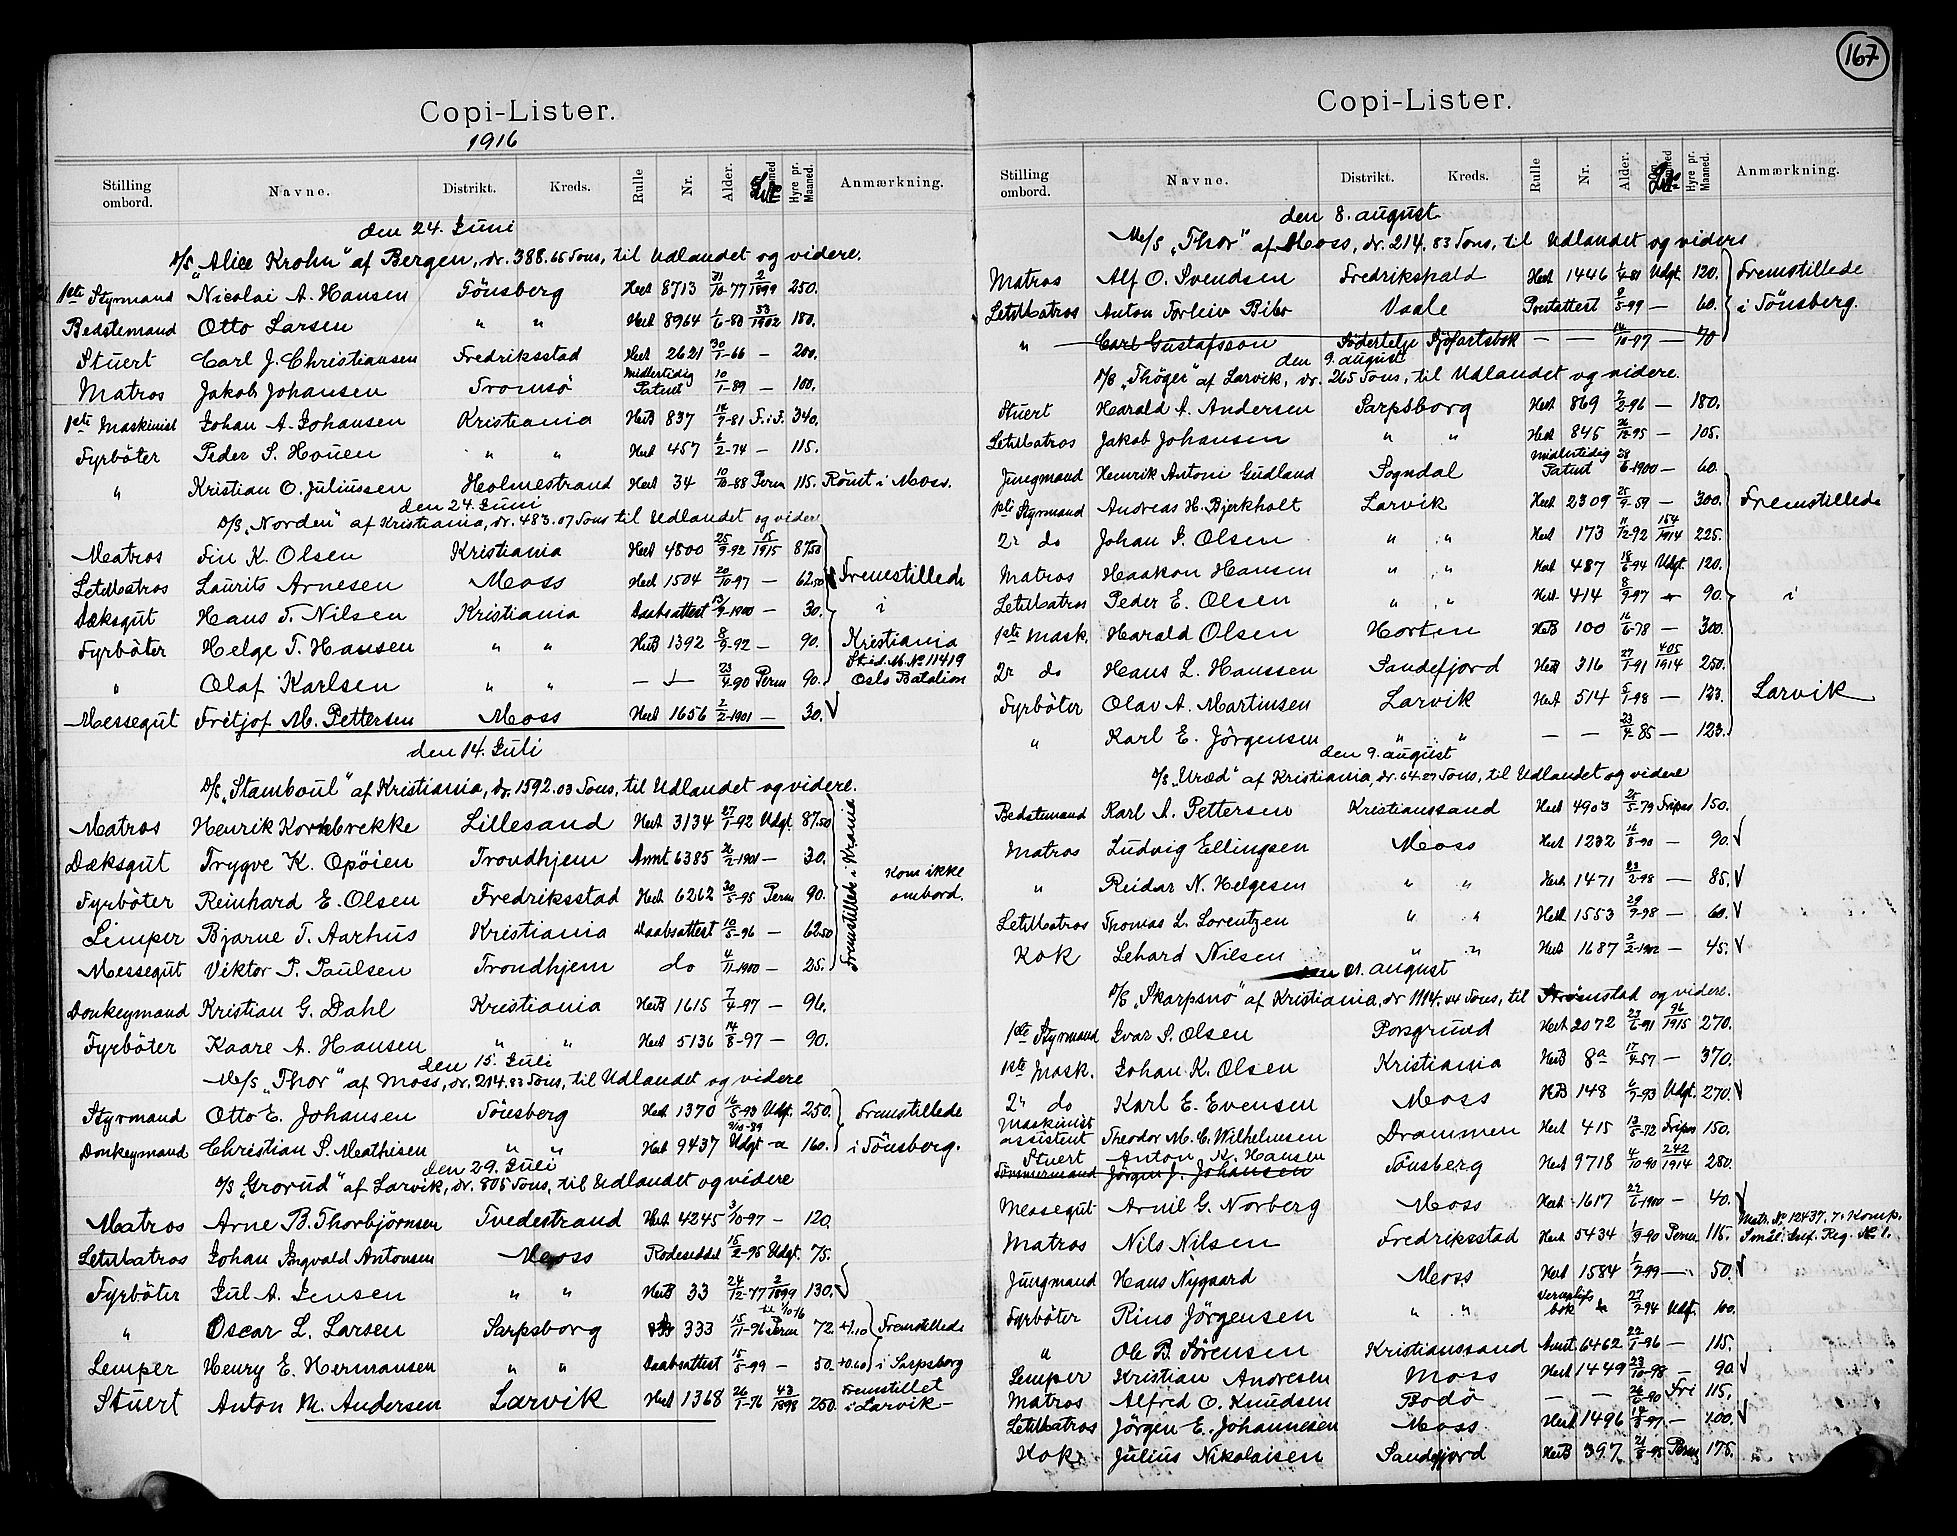 167
Copi-Lister.
1916
Stilling ombord. Navne. Distrikt. Kreds. Rulle Nr. Alder. Hyre pr. Maaned. Anmærkning.
den 24. Juni
D/S „Alice Krohn" af Bergen, dr. 388.65 Tons, til Udlandet og videre.
1ste Styrmand Nicolai A. Hansen Tönsberg Hert 8713 31/10-77 2/1899 250.
Bedstemand Otto Larsen " " Hert 8964 1/6-80 53/1902 180.
Stuert Carl J. Christiansen Fredriksstad Hert 2621 30/1-66 — 200.
Matros Jakob Johansen Tromsö Midlertidig Patent 10/1-89 — 100.
1ste Maskinist Johan A. Johansen Kristiania HertB 837 14/9-81 F.i.S. 340.
Fyrböter Peder S. Houen " " Hert 457 6/2-74 — 115.
" Kristian O. Juliussen Holmestrand Hert 34 10/10-88 Perm 115. Römt i Moss.
den 24. Juni
D/S „Norden" af Kristiania, dr. 483.07 Tons til Udlandet og videre
Matros Fin K. Olsen Kristiania Hert 4800 25/9-92 15/1915 87.50
LetMatros Laurits Arnesen Moss Hert 1504 20/10-97 — 62.50 Fremstillede
Dæksgut Hans T. Nilsen Kristiania Daabsattest 13/9-1900 — 30. i
Fyrböter Helge T. Hansen " " HertB 1392 8/9-92 — 90. Kristiania
" Olaf Karlsen " " — — 23/4-90 Perm 90. Stid. M. No 11419 Oslo Batalion
Messegut Fritjof M. Pettersen Moss Hert 1656 2/2-1901 — 30.
den 14. Juli
D/S „Stamboul" af Kristiania, dr. 1592.03 Tons, til Udlandet og videre.
Matros Henrik Korkbrekke Lillesand Hert 3134 27/1-92 Udgt. 87.50 Fremstillede i Krania
Dæksgut Trygve K. Opöien Trondhjem Annt 6385 26/2-1901 — 30. Kom ikke
Fyrböter Reinhard E. Olsen Fredriksstad Hert 6262 30/5-95 Perm 90. ombord.
Limper Bjarne T. Aarhus Kristiania Daabsattest 10/5-96 — 62.50
Messegut Viktor P. Paulsen Trondhjem do 4/11-1900 — 25.
Donkeymand Kristian G. Dahl Kristiania HertB 1615 7/4-97 — 96.
Fyrböter Kaare A. Hansen " " Hert 5136 14/8-97 — 90.
den 15. Juli
M/S „Thor" af Moss, dr. 214.83 Tons, til Udlandet og videre
Styrmand Otto E. Johansen Tönsberg Hert 1370 16/5-93 Udgt. 250. Fremstillede
Donkeymand Christian P. Mathisen " " Hert 9437 9/10-89 Udgt 160. i Tönsberg.
den 29. Juli
D/S „Grorud" af Larvik, dr. 805 Tons, til Udlandet og videre
Matros Arne B. Thorbjörnsen Tvedestrand Hert 4245 3/10-97 — 120.
LetMatros Johan Ingvald Antonsen Moss Rodeseddel 15/2-95 Udgt. 75.
Fyrböter Jul A. Jensen " " HertB 33 24/12-77 2/1899 130.
" Oscar L. Larsen Sarpsborg 333 15/11-96 Perm 72. +1.10 Fremstillede
Lemper Henry E. Hermansen " " Daabsattest 15/5-99 — 50. +0.60 i Sarpsborg
Stuert Anton M. Andersen Larvik Hert 1368 26/1-76 43/1898 250. Fremstillet i Larvik —
Copi-Lister.
Stilling ombord. Navne. Distrikt. Kreds. Rulle Nr. Alder. Hyre pr. Maaned. Anmærkning.
den 8. august
M/S „Thor" af Moss, dr. 214.83 Tons, til Udlandet og videre
Matros Alf O. Svendsen Fredrikshald Hert 1446 1/6-81 Udgt. 120. Fremstillede
LetMatros Anton Torleiv Bibo Vaale Prestattest 9/5-99 — 60. i Tönsberg.
" Carl Gustafsson Södertelje Sjöfartsbok — — 14/10-97 — 70
den 9. august
D/S „Thöger" af Larvik, dr. 265 Tons, til Udlandet og videre.
Stuert Harald A. Andersen Sarpsborg Hert 869 2/2-96 — 180.
LetMatros Jakob Johansen " " Hert 845 26/12-95 — 105.
Jungmand Henrik Antoni Gudland Sogndal Midlertidig Patent 28/6-1900 — 60.
1ste Styrmand Andreas H. Bjerkholt Larvik Hert 2309 25/9-59 — 300. Fremstillede
2r do Johan I. Olsen " " Hert 173 11/12-92 154/1914 225.
Matros Haakon Hansen " " Hert 487 18/6-94 Udgt. 120.
LetMatros Peder E. Olsen " " Hert 414 8/9-97 — 90. i
1ste Mask. Harald Olsen Horten HertB 100 16/6-78 — 300.
2r do Hans L. Hanssen Sandefjord HertB 316 27/1-91 405/1914 250.
Fyrböter Olav A. Martinsen Larvik Hert 514 5/1-98 — 133. Larvik
" Karl E. Jörgensen " " — — 23/4-85 — 123.
den 9. august
D/S „Uræd" af Kristiania, dr. 64.27 Tons, til Udlandet og videre
Bedstemand Karl A. Pettersen Kristianssand Hert 4903 25/5-79 Fripas 150.
Matros Ludvig Ellingsen Moss Hert 1232 16/8-90 — 90.
" Reidar N. Helgesen " " Hert 1471 23/2-98 — 85.
LetMatros Thomas L. Lorentzen " " Hert 1553 29/9-98 — 60.
Kok Lehard Nilsen " " Hert 1687 2/2-1902 — 45.
den 21. august
D/S „Skarpsno" af Kristiania, dr 1114.44 Tons, til Strömstad og videre.
1ste Styrmand Ivar S. Olsen Porsgrund Hert 2072 23/6-91 96/1915 270.
1ste Mask. Johan K. Olsen Kristiania HertB 8a 17/4-57 — 370.
2n do Karl E. Evensen Moss HertB 148 6/9-93 Udgt. 270.
Maskinist assistent Theodor M. C. Wilhelmsen Drammen Hert 415 13/5-72 Fripas 150.
Stuert Anton K. Hansen
Tömmermand Jörgen J. Johansen Tönsberg Hert 9718 4/10-90 242/1914 280.
Messegut Arnil G. Norberg Moss Hert 1617 29/6-1900 — 40.
Matros Nils Nilsen Fredriksstad Hert 5434 1/9-90 Perm 115. Matr. No 12437, 7. Komp. Smål. Inf. Reg. No 1.
Jungmand Hans Nygaard Moss Hert 1584 1/2-99 — 50.
Fyrböter Rino Jörgensen " " Vernepligts bok 27/2-94 Udgt. 100.
" Ole B. Sörensen Kristianssand Annt 6462 22/1-96 — 115.
Lemper Kristian Andresen Moss Hert 1449 23/10-98 — 90.
Matros Alfred O. Knudsen Bodö — — 26/6-90 Fri 115.
LetMatros Jörgen E. Johannesen Moss Hert 1496 14/8-97 — 100.
Kok Julius Nikolaisen Sandefjord HertB 397 21/8-95 Perm 175.